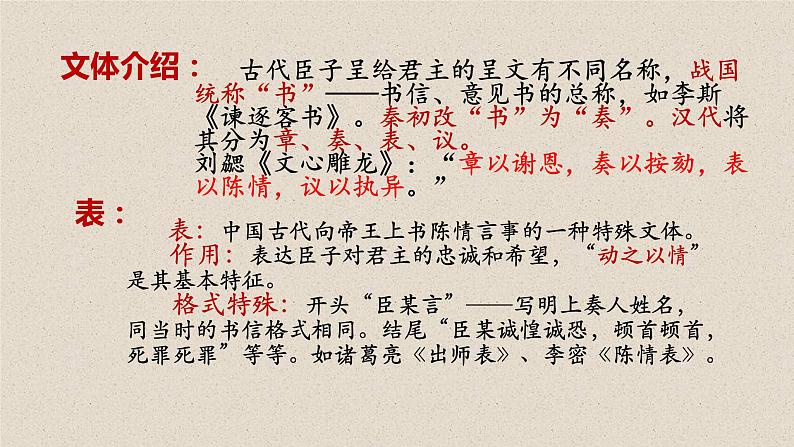 文体介绍： 古代臣子呈给君主的呈文有不同名称，战国
统称“书”——书信、意见书的总称，如李斯
《谏逐客书》。秦初改“书”为“奏”。汉代将
其分为章、奏、表、议。
刘勰《文心雕龙》：“章以谢恩，奏以按劾，表
以陈情，议以执异。”
表：
表：中国古代向帝王上书陈情言事的一种特殊文体。
作用：表达臣子对君主的忠诚和希望，“动之以情”
是其基本特征。
格式特殊：开头“臣某言”——写明上奏人姓名，
同当时的书信格式相同。结尾“臣某诚惶诚恐，顿首顿首，
死罪死罪”等等。如诸葛亮《出师表》、李密《陈情表》。